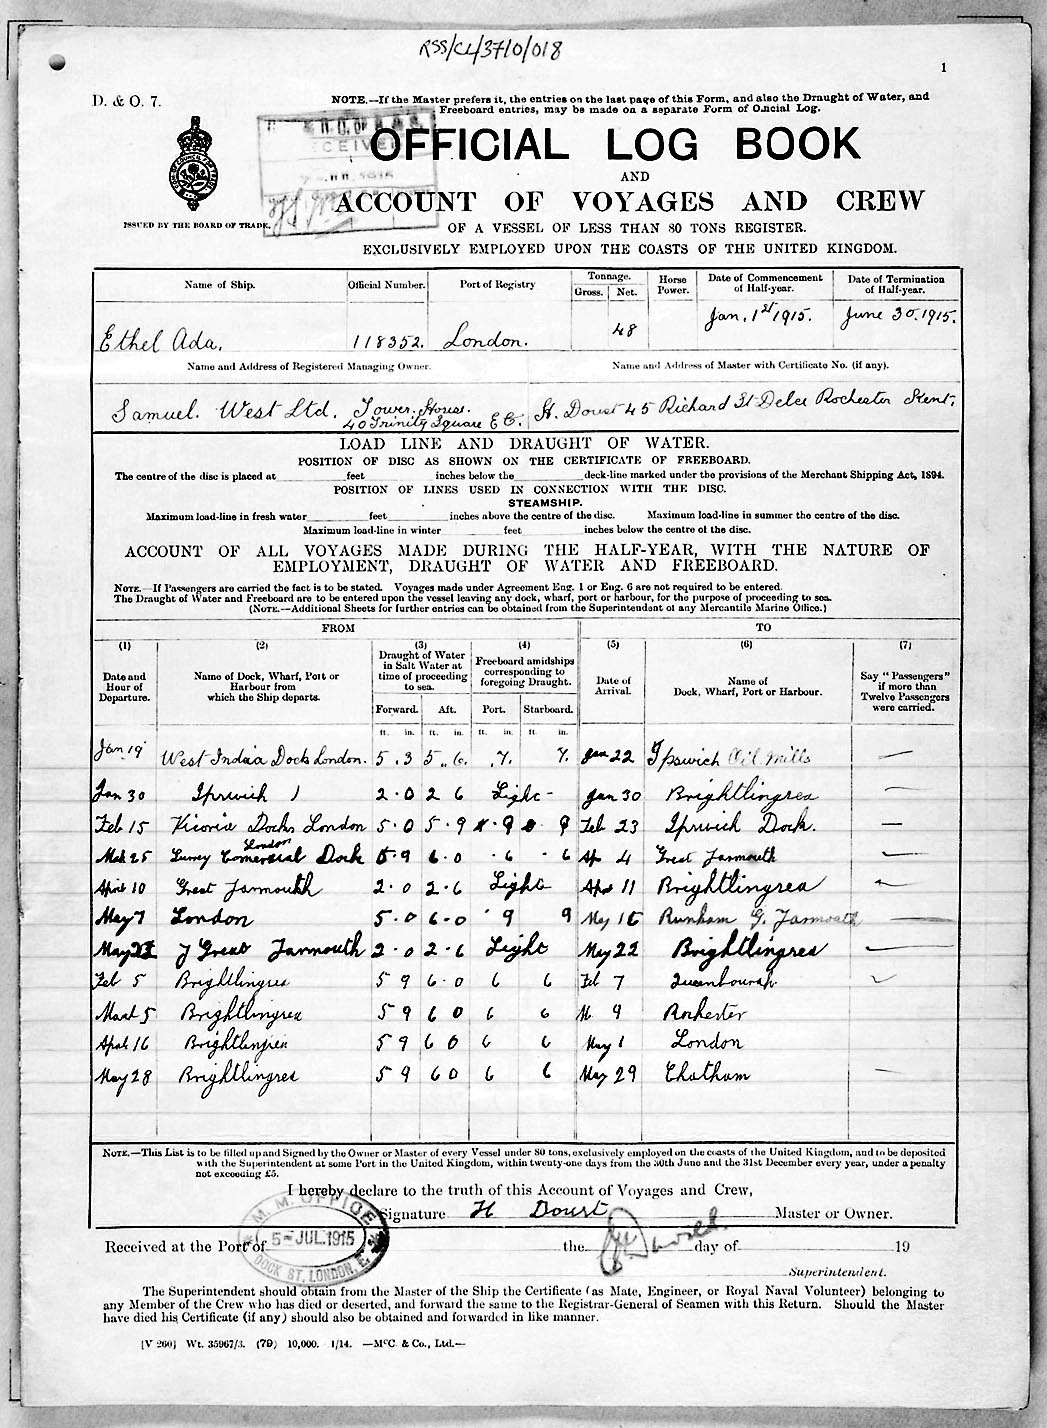 RSS/CL/3710/018
1
D. & O. 7.
NOTE.—If the Master prefers it, the entries on the last page of this Form, and also the Draught of Water, and
Freeboard entries, may be made on a separate Form of Official Log.
RECEIVED
OFFICIAL LOG BOOK
AND
ACCOUNT OF VOYAGES AND CREW
ISSUED BY THE BOARD OF TRADE.
OF A VESSEL OF LESS THAN 80 TONS REGISTER.
EXCLUSIVELY EMPLOYED UPON THE COASTS OF THE UNITED KINGDOM.
Name of Ship. Official Number. Port of Registry Tonnage. Gross. Net. Horse Power. Date of Commencement of Half-year. Date of Termination of Half-year.
Ethel Ada. 118352. London. 48 Jan. 1st 1915. June 30.1915.
Name and Address of Registered Managing Owner. Name and Address of Master with Certificate No. (if any).
Samuel. West Ltd. Tower House. 40 Trinity Square E C. H. Doust 45 Richard St Delce Rochester Kent.
LOAD LINE AND DRAUGHT OF WATER.
POSITION OF DISC AS SHOWN ON THE CERTIFICATE OF FREEBOARD.
The centre of the disc is placed at feet inches below the deck-line marked under the provisions of the Merchant Shipping Act, 1894.
POSITION OF LINES USED IN CONNECTION WITH THE DISC.
STEAMSHIP.
Maximum load-line in fresh water feet inches above the centre of the disc. Maximum load-line in summer the centre of the disc.
Maximum load-line in winter feet inches below the centre of the disc.
ACCOUNT OF ALL VOYAGES MADE DURING THE HALF-YEAR, WITH THE NATURE OF
EMPLOYMENT, DRAUGHT OF WATER AND FREEBOARD.
NOTE.—If Passengers are carried the fact is to be stated. Voyages made under Agreement Eng. 1 or Eng. 6 are not required to be entered.
The Draught of Water and Freeboard are to be entered upon the vessel leaving any dock, wharf, port or harbour, for the purpose of proceeding to sea.
(NOTE.—Additional Sheets for further entries can be obtained from the Superintendent of any Mercantile Marine Office.)
FROM TO
(1) (2) (3) (4) (5) (6) (7)
Date and Hour of Departure. Name of Dock, Wharf, Port or Harbour from which the Ship departs. Draught of Water in Salt Water at time of proceeding to sea. Freeboard amidships corresponding to foregoing Draught. Date of Arrival. Name of Dock, Wharf, Port or Harbour. Say "Passengers" if more than Twelve Passengers were carried.
Forward. Aft. Port. Starboard.
ft. in. ft. in. ft. in. ft. in.
Jan 19 West India Dock London. 5 . 3 5 .. 6. .7. 7. Jan 22 Ipswich Oil Mills —
Jan 30 Ipswich 2 . 0 2 6 Light - Jan 30 Brightlingsea —
Feb 15 Vicoria Docks London 5 . 0 5 . 9 . 9 9 Feb 23 Ipswich Dock. —
Mch 25 Surrey Comercial London Dock 5 . 9 6 . 0 . 6 . 6 Ap 4 Great Yarmouth —
April 10 Great Yarmouth 2 . 0 2 . 6 Light Apr 11 Brightlingsea —
May 7 London 5 . 0 6 - 0 9 9 May 15 Runham G. Yarmouth —
May 21 Great Yarmouth 2 . 0 2 . 6 Light May 22 Brightlingsea —
Feb 5 Brightlingsea 5 9 6 . 0 6 6 Feb 7 Queenbourah
March 5 Brightlingsea 5 9 6 0 6 6 M 9 Rochester
April 16 Brightlingsea 5 9 6 0 6 6 May 1 London
May 28 Brightlingsea 5 9 6 0 6 6 May 29 Chatham —
NOTE.—This List is to be filled up and Signed by the Owner or Master of every Vessel under 80 tons, exclusively employed on the coasts of the United Kingdom, and to be deposited
with the Superintendent at some Port in the United Kingdom, within twenty-one days from the 30th June and the 31st December every year, under a penalty
not exceeding £5.
I hereby declare to the truth of this Account of Voyages and Crew,
Signature H Doust Master or Owner.
M. M. OFFICE
5 - JUL.1915
DOCK ST. LONDON, E.
Received at the Port of the day of 19
Superintendent.
The Superintendent should obtain from the Master of the Ship the Certificate (as Mate, Engineer, or Royal Naval Volunteer) belonging to
any Member of the Crew who has died or deserted, and forward the same to the Registrar-General of Seamen with this Return. Should the Master
have died his Certificate (if any) should also be obtained and forwarded in like manner.
[V 260] Wt. 35967/3. (79) 10,000. 1/14. —McC & Co., Ltd.—